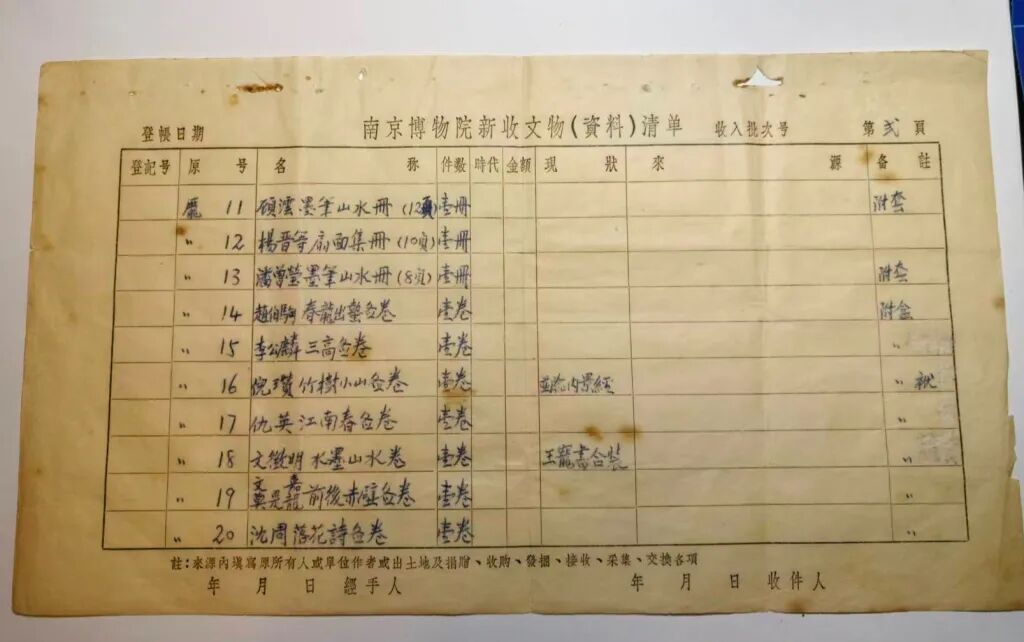 南京博物院新收文物(資料)清单
登帳日期 收入批次号 第 弍 頁
登記号 原号 名称 件数 時代 金額 現狀 來源 备註
龐 11 顧澐墨筆山水冊 (12頁) 壹冊 附套
〃 12 楊晋等扇面集冊 (10頁) 壹冊
〃 13 潘曾瑩墨筆山水冊 (8頁) 壹冊 附套
〃 14 趙伯駒 春龍出蟄啚卷 壹卷 附盒
〃 15 李公麟 三高啚卷 壹卷 〃
〃 16 倪瓚 竹樹小山啚卷 壹卷 内景經 〃
〃 17 仇英 江南春啚卷 壹卷 〃
〃 18 文徵明 水墨山水卷 壹卷 王寵書合裝 〃
〃 19 文嘉 前後赤壁啚卷 壹卷 〃
〃 20 沈周 落花詩啚卷 壹卷 〃
註:來源內填寫原所有人或單位作者或出土地及捐贈、收购、發掘、接收、采集、交换各項
年 月 日 經手人 年 月 日 收件人